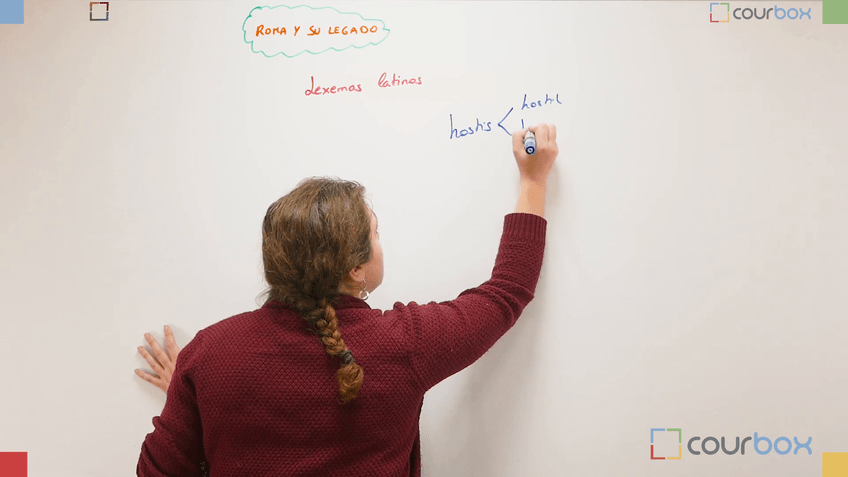 courbox
ROMA Y SU LEGADO
Lexemas latinos
hostil
hostis
courbox